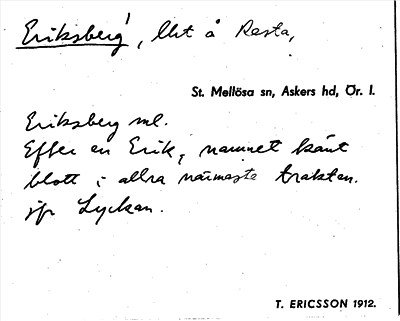 Eriksberg, lht å Resta,
St. Mellösa sn, Askers hd, Ör. l.
Eriksberg ml.
Efter en Erik, namnet känt
blott i allra närmaste trakten.
jfr Lyckan.
T. ERICSSON 1912.